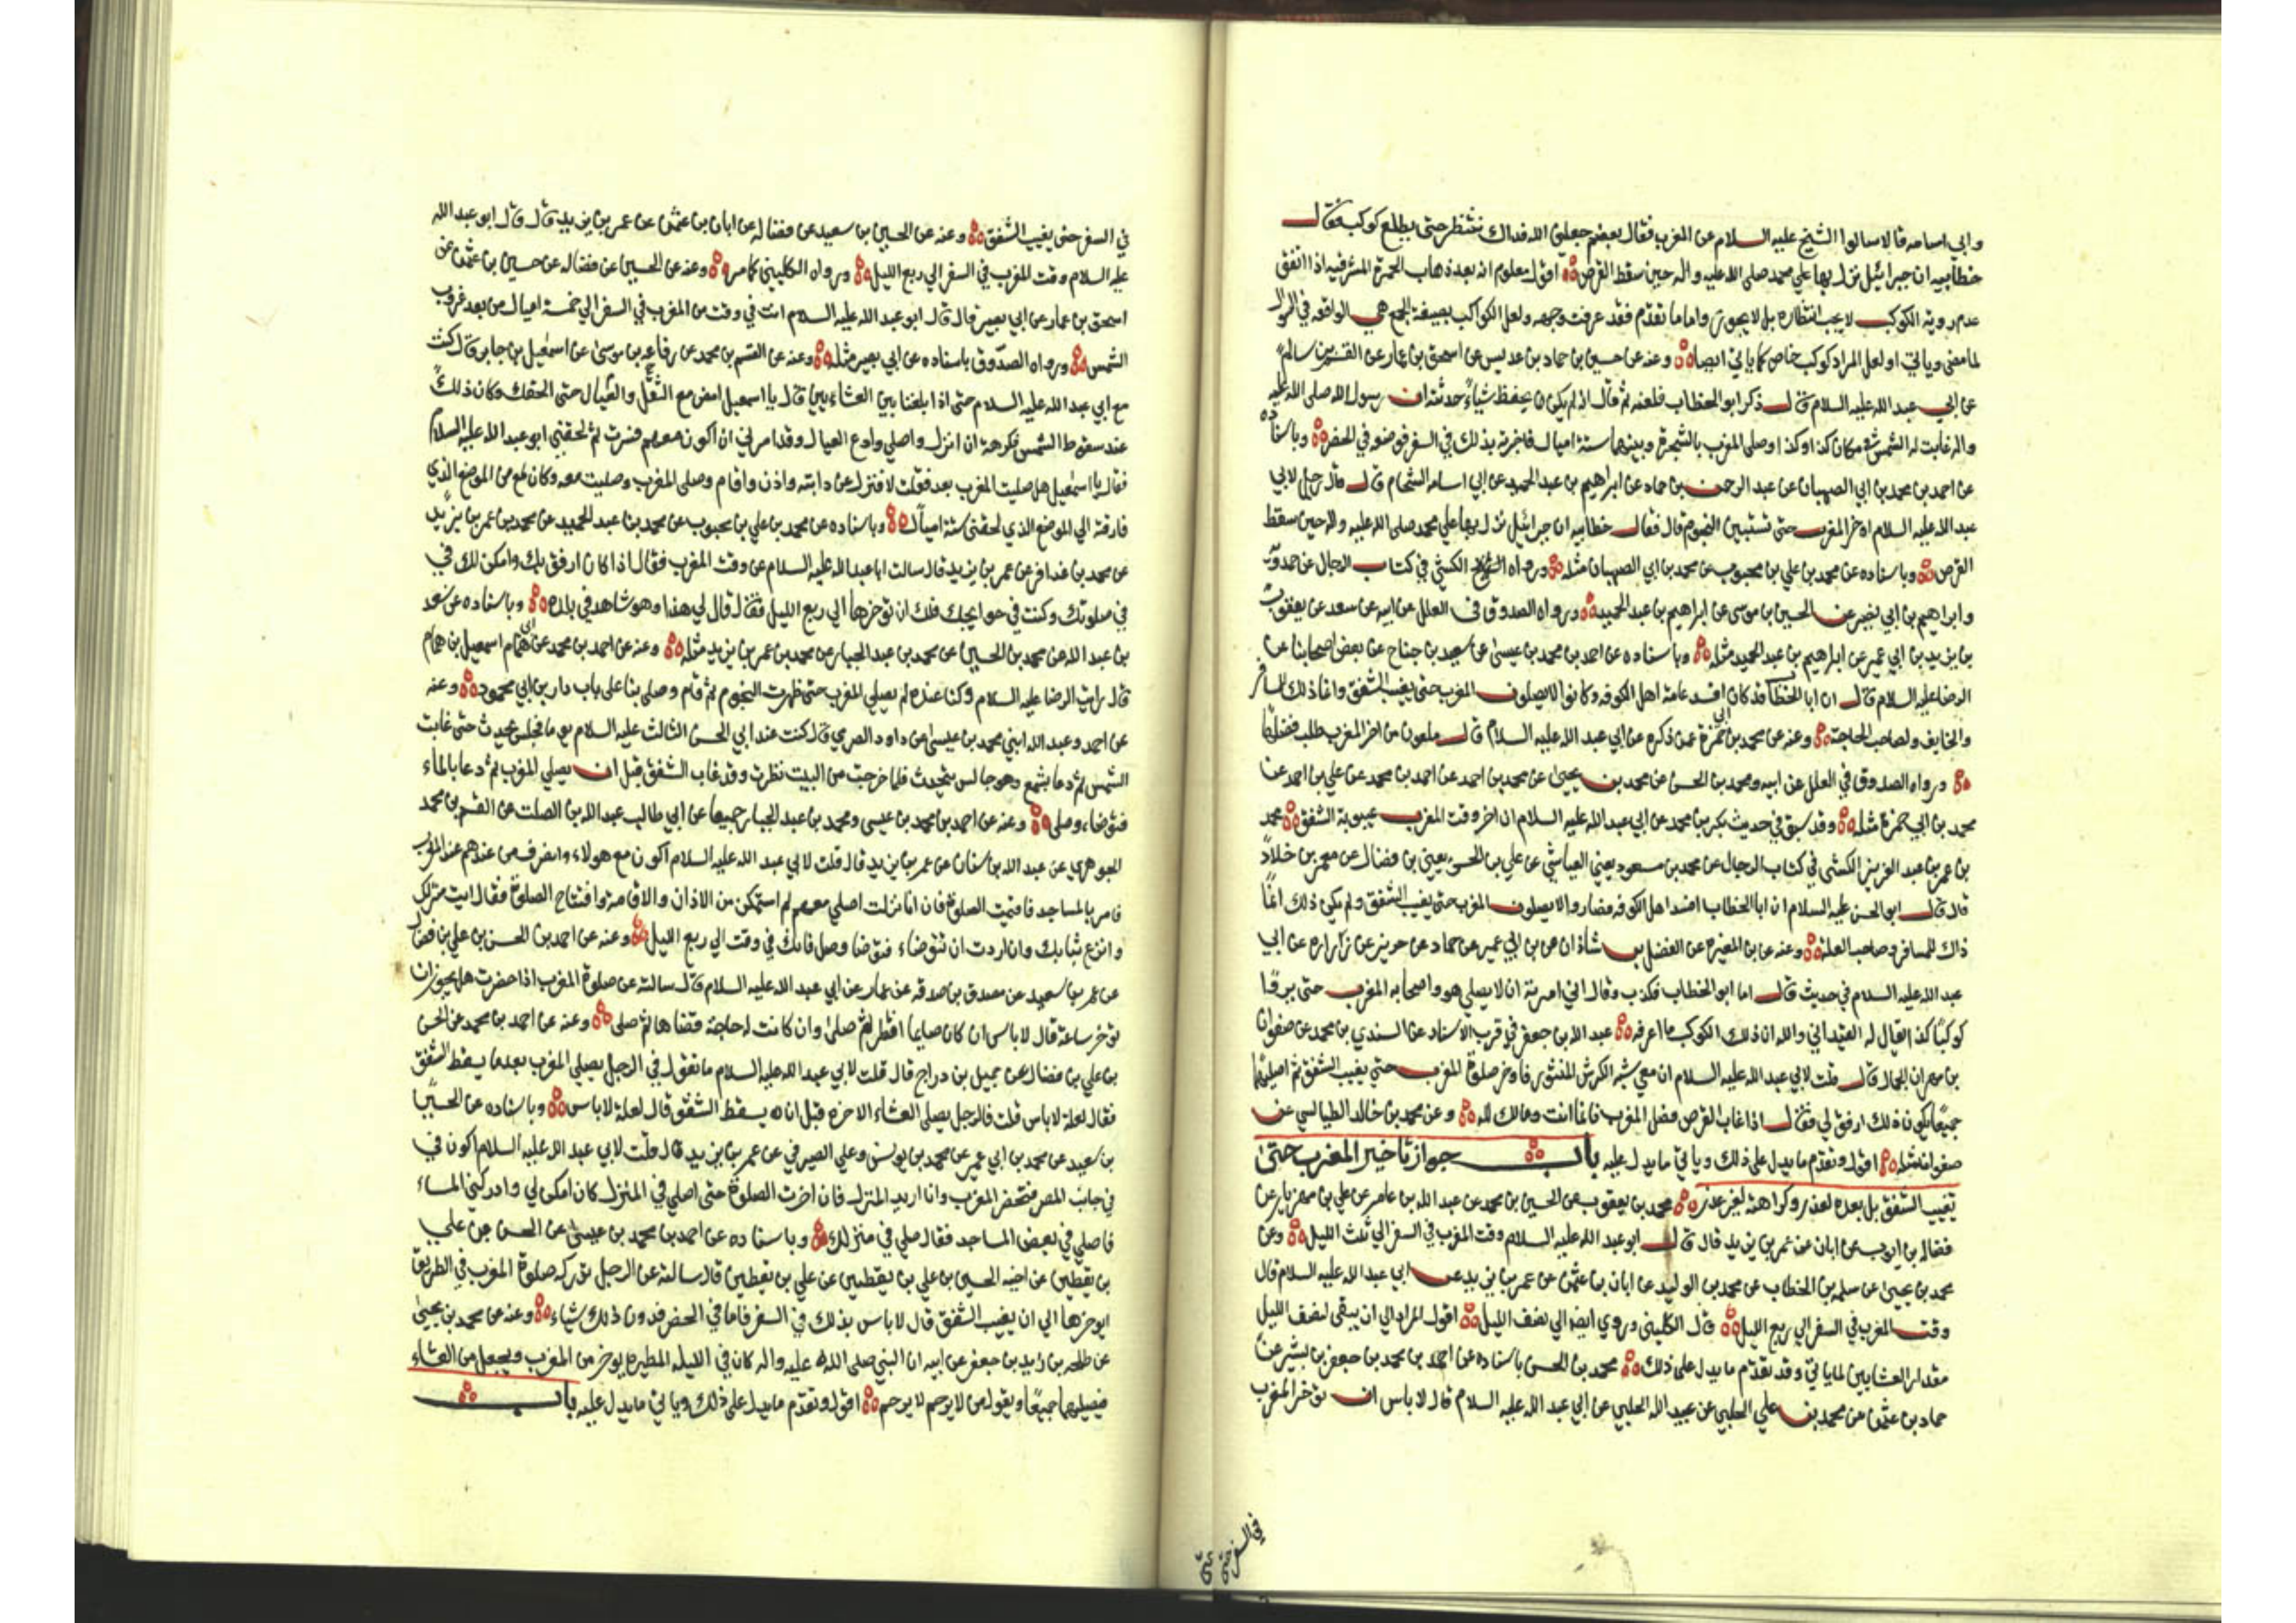 وابي اسامه قالا سالوا الشيخ عليه السلام عن المغرب فقال بعضهم جعلني الله فداك ننتظر حتى يطلع كوكب فقال
خطابيه ان جبرائيل نزل بها علي محمد صلى الله عليه واله حين سقط القرص اقول معلوم انه بعد ذهاب الحمرة المشرقيه اذا اتفق
عدم روية الكوكب لا يجب انتظاره بل لا يجوز واما ما تقدم فقد عرفت وجهه ولعل الكواكب بصيغة الجمع هي الواقعه في السوال
لما مضى وياتي او لعل المراد كوكب خاص كما ياتي ايضا وعنه عن حسين بن حماد بن عديس عن اسحق بن عمار عن القسم بن سالم
عن ابي عبد الله عليه السلام قال ذكر ابو الخطاب فلعنه ثم قال انه لم يكن يحفظ شياء حدثته ان رسول الله صلى الله عليه
واله غابت له الشمس في مكان كذا وكذا وصلى المغرب بالشجرة وبينهما ستة اميال فاخبرته بذلك في السفر فوضعه في الحضر وباسناده
عن احمد بن محمد بن ابي الصهبان عن عبد الرحمن بن حماد عن ابراهيم بن عبد الحميد عن ابي اسامه الشحام قال قال رجل لابي
عبد الله عليه السلام اوخر المغرب حتى تستبين النجوم قال فقال خطابيه ان جبرائيل نزل بها علي محمد صلى الله عليه واله حين سقط
القرص وباسناده عن محمد بن علي بن محبوب عن محمد بن ابي الصهبان مثله ورواه الكشي في كتاب الرجال عن حمدويه
وابراهيم بن ابي نصير عن الحسين بن موسى عن ابراهيم بن عبد الحميد ورواه الصدوق في العلل عن ابيه عن سعد عن يعقوب
بن يزيد بن ابي عمير عن ابراهيم بن عبد الحميد مثله وباسناده عن احمد بن محمد بن عيسى عن سعيد بن جناح عن بعض اصحابنا عن
الرضا عليه السلام قال ان ابا الخطاب قد كان افسد عامة اهل الكوفه وكانوا لا يصلون المغرب حتى يغيب الشفق وانما ذلك للمسافر
والخايف ولصاحب الحاجة وعنه عن محمد بن ابي حمزة عمن ذكره عن ابي عبد الله عليه السلام قال ملعون من اخر المغرب طلب فضلها
ورواه الصدوق في العلل عن ابيه ومحمد بن الحسن عن محمد بن يحيى عن محمد بن احمد عن احمد بن محمد عن علي بن احمد عن
محمد بن ابي حمزة مثله وقد سبق في حديث بكر بن محمد عن ابي عبد الله عليه السلام ان اخر وقت المغرب غيبوبة الشفق محمد
بن عمر بن عبد العزيز الكشي في كتاب الرجال عن محمد بن مسعود يعني العياشي عن علي بن الحسن يعني بن فضال عن معمر بن خلاد
قال قال ابو الحسن عليه السلام ان ابا الخطاب افسد اهل الكوفه فصاروا لا يصلون المغرب حتى يغيب الشفق ولم يكن ذلك انما
ذاك للمسافر وصاحب العلة وعنه عن بن المغيره عن الفضل بن شاذان عن بن ابي عمير عن حماد عن حريز عن زراره عن ابي
عبد الله عليه السلام في حديث قال اما ابو الخطاب فكذب وقال اني امرته ان لا يصلي هو واصحابه المغرب حتى يروا
كوكبا كذا يقال له القيداني والله ان ذلك الكوكب ما اعرفه عبد الله بن جعفر في قرب الاسناد عن السندي بن محمد عن صفوان
بن مهران الجمال قال قلت لابي عبد الله عليه السلام ان معي شبه الكرش المنثور فاوخر صلوة المغرب حتي يغيب الشفق ثم اصليهما
جميعا يكون ذلك ارفق لي فقال اذا غاب القرص فصل المغرب فانما انت ومالك لله وعن محمد بن خالد الطيالسي عن
صفوان مثله اقول وتقدم ما يدل على ذلك وياتي ما يدل عليه باب جواز تاخير المغرب حتى
يغيب الشفق بل بعده لعذر وكراهته لغير عذر محمد بن يعقوب عن الحسين بن محمد عن عبد الله بن عامر عن علي بن مهزيار عن
فضاله بن ايوب عن ابان عن عمر بن يزيد قال قال ابو عبد الله عليه السلام وقت المغرب في السفر الي ثلث الليل وعن
محمد بن يحيى عن سلمه بن الخطاب عن محمد بن الوليد عن ابان بن عثمن عن عمر بن يزيد عن ابي عبد الله عليه السلام قال
وقت المغرب في السفر الي ربع الليل قال الكليني وروي ايضا الي نصف الليل اقول المراد الي ان يبقى لنصف الليل
مقدار العشايين لما ياتي وقد تقدم ما يدل على ذلك محمد بن الحسن باسناده عن احمد بن محمد بن جعفر بن بشير عن
حماد بن عثمن عن محمد بن علي الحلبي عن عبيد الله الحلبي عن ابي عبد الله عليه السلام قال لا باس ان توخر المغرب
في السفر حتى
في السفر حتى يغيب الشفق وعنه عن الحسين بن سعيد عن فضاله عن ابان بن عثمن عن عمر بن يزيد قال قال ابو عبد الله
عليه السلام وقت المغرب في السفر الي ربع الليل ورواه الكليني كما مر وعنه عن الحسين عن فضاله عن حسين بن عثمن عن
اسحق بن عمار عن ابي بصير قال قال ابو عبد الله عليه السلام انت في وقت من المغرب في السفر الي خمسة اميال من بعد غروب
الشمس ورواه الصدوق باسناده عن ابي بصير مثله وعنه عن القسم بن محمد عن رفاعه بن موسى عن اسمعيل بن جابر قال كنت
مع ابي عبد الله عليه السلام حتى اذا بلغنا بين العشاءين قال يا اسمعيل امض مع الثقل والعيال حتى الحقك وكان ذلك
عند سقوط الشمس فكرهت ان انزل واصلي وادع العيال وقد امرني ان اكون معهم فسرت ثم لحقني ابو عبد الله عليه السلام
فقال يا اسمعيل هل صليت المغرب بعد فقلت لا فنزل عن دابته واذن واقام وصلى المغرب وصليت معه وكان من الموضع الذي
فارقته الي الموضع الذي لحقني ستة اميال وباسناده عن محمد بن علي بن محبوب عن محمد بن عبد الحميد عن محمد بن عمر بن يزيد
عن محمد بن عذافر عن عمر بن يزيد قال سالت ابا عبد الله عليه السلام عن وقت المغرب فقال اذا كان ارفق بك وامكن لك في
في صلوتك وكنت في حوايجك فلك ان توخرها الي ربع الليل فقال قال لي هذا وهو شاهد في بلده وباسناده عن سعد
بن عبد الله عن محمد بن الحسين عن محمد بن عبد الجبار عن محمد بن عمر بن يزيد مثله وعنه عن احمد بن محمد عن ابي همام اسمعيل بن همام
قال رايت الرضا عليه السلام وكنا عنده لم يصلي المغرب حتى ظهرت النجوم ثم قام وصلى بنا على باب دار بن ابي محمود وعنه
عن احمد وعبد الله ابني محمد بن عيسى عن داود الصرمي قال كنت عند ابي الحسن الثالث عليه السلام يوما فجلس يحدث حتى غابت
الشمس ثم دعا بشمع وهو جالس يتحدث فلما خرجت من البيت نظرت وقد غاب الشفق قبل ان يصلي المغرب ثم دعا بالماء
فتوضاء وصلى وعنه عن احمد بن محمد بن عيسى ومحمد بن عبد الجبار جميعا عن ابي طالب عبد الله بن الصلت عن القسم بن محمد
الجوهري عن عبد الله بن سنان عن عمر بن يزيد قال قلت لابي عبد الله عليه السلام اكون مع هولاء وانصرف من عندهم عند المغرب
فامر بالمساجد فاقيمت الصلوة فان انا نزلت اصلي معهم لم استمكن من الاذان والاقامة وافتتاح الصلوة فقال ايت منزلك
وانزع ثيابك وان اردت ان تتوضاء فتوضا وصل فانك في وقت الي ربع الليل وعنه عن احمد بن الحسن بن علي بن فضال
عن عمر بن سعيد عن مصدق بن صدقه عن عمار عن ابي عبد الله عليه السلام قال سالته عن صلوة المغرب اذا حضرت هل يجوز ان
توخر ساعة قال لا باس ان كان صايما افطر ثم صلى وان كانت له حاجة قضاها ثم صلى وعنه عن احمد بن محمد عن الحسن
بن علي بن فضال عن جميل بن دراج قال قلت لابي عبد الله عليه السلام ما تقول في الرجل يصلي المغرب بعدما يسقط الشفق
فقال لعلة لا باس قلت فالرجل يصلي العشاء الاخره قبل ان يسقط الشفق قال لعلة لا باس وباسناده عن الحسين
بن سعيد عن محمد بن ابي عمير عن محمد بن يونس وعلي الصيرفي عن عمر بن يزيد قال قلت لابي عبد الله عليه السلام اكون في
في جانب المصر فتحضر المغرب وانا اريد المنزل فان اخرت الصلوة حتى اصلي في المنزل كان امكن لي وادركني المساء
فاصلي في بعض المساجد فقال صلي في منزلك وباسناده عن احمد بن محمد بن عيسى عن الحسن بن علي
بن يقطين عن اخيه الحسين بن علي بن يقطين عن علي بن يقطين قال سالته عن الرجل تدركه صلوة المغرب في الطريق
ايوخرها الي ان يغيب الشفق قال لا باس بذلك في السفر فاما في الحضر فدون ذلك شياء وعنه عن محمد بن يحيى
عن طلحه بن زيد بن جعفر عن ابيه ان النبي صلى الله عليه واله كان في الليله المطيره يوخر من المغرب ويعجل من العشاء
فيصليهما جميعا ويقول من لا يرحم لا يرحم اقول وتقدم ما يدل على ذلك وياتي ما يدل عليه باب